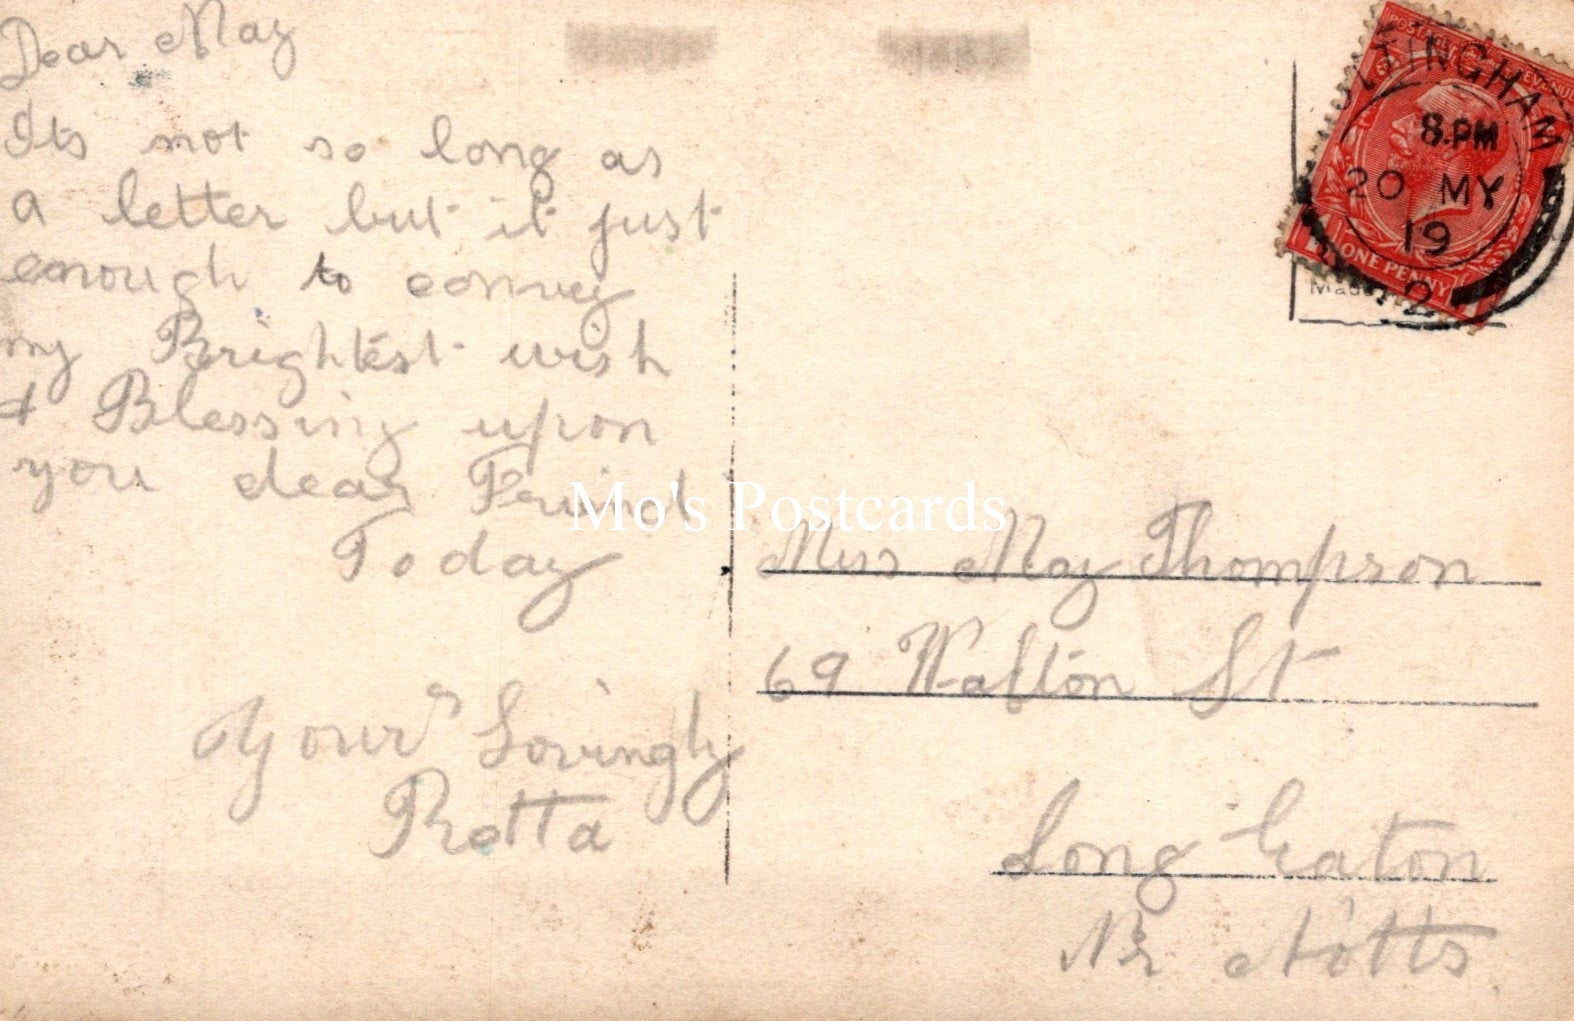 Dear May
Its not so long as
a letter but it just
enough to convey
my Brightest wish
& Blessing upon
you dear Friend
Today
Your Lovingly
Retta
Miss May Thompson
69 Walton St
Long Eaton
Nr Notts
TTINGHAM
8.PM
20 MY
19
2
POSTAGE REVENUE
ONE PENNY
1
Made
Mo's Postcards